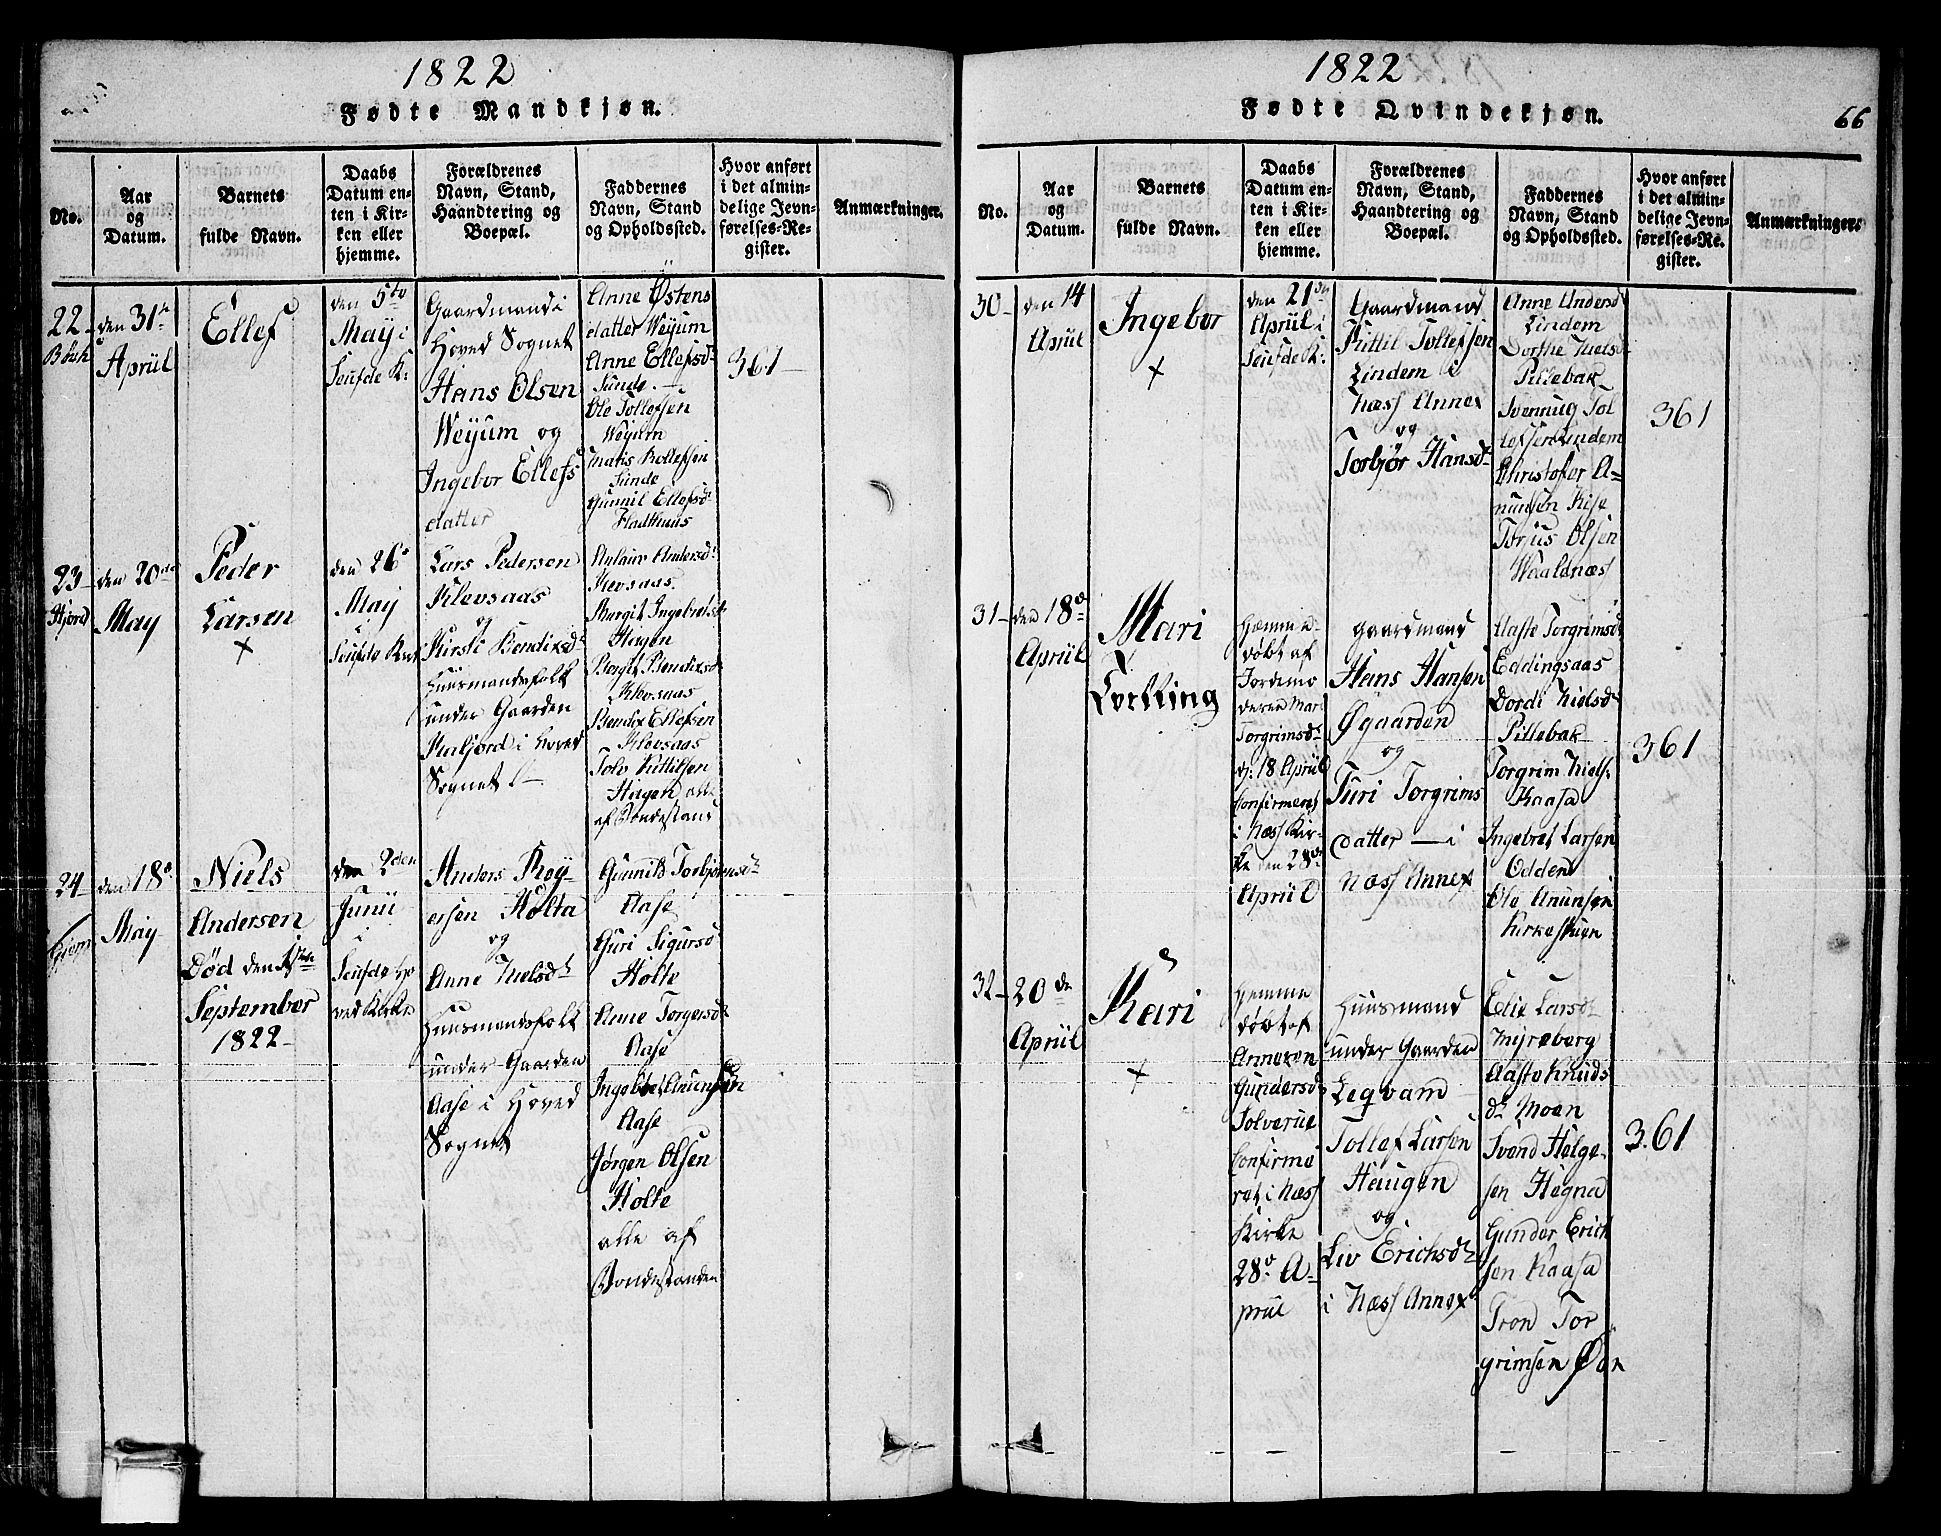 1822
Fødte Mandkjøn.
No.
Aar
og
Datum.
Barnets
fulde Navn.
Daabs
Datum en-
ten i Kir-
ken eller
hjemme.
Forældrenes
Navn, Stand,
Haandtering og
Boepæl.
Faddernes
Navn, Stand
og Opholdssted.
Hvor anført
i det almin-
delige Jevn-
førelses-Re-
gister.
Anmærkninger.
22
den 31te
Apriil
Ellef
den 5te
May i
Seufde K:
Gaardmand i
Hoved Sognet
Hans Olsen
Weyum og
Ingebor Ellefs
datter
Anne Østens
datter Weyum
Anne Ellefsdr
Sunde
Ole Tollefsen
Weyum
Matis Rollefsen
Sunde
Gunnil Ellefsdr
Hadthuus
361
23
Hjord
den 20de
May
Peder
Larsen
+
den 26e
May
Seufde Kirke
Lars Pedersen
Klevsaas
og
Kirsti Bendixsdr
Huusmandsfolk
under Gaarden
i Hoved
Sognet
Aslaw Andersdr
Klevsaas
Margit Ingebretsdr
Hagen
Borgit Bendixsdr
Klevsaas
Bendix Ellefsen
Klevsaas
Tolv Kittilsen
Hagen alle
af Bondestand
24
den 18de
May
Niels
Andersen
Død den 1ste
September
1822
den 2den
Junii
i
Seufde Ho
ved Kirke
Anders Roy-
ersen Holta
og
Anne Nielsdr
Huusmandsfolk
under Gaarden
Aase i Hoved
Sognet
Gunnild Torbjørnsdr
Aase
Guri Sigursd
Holte
Anne Torgersdr
Aase
Ingebret Anunsen
Aase
Jørgen Olsen
Holte
alle af
Bondestanden
1822
Fødte Qvindekjøn.
66
No.
Aar
og
Datum.
Barnets
fulde Navn.
Daabs
Datum en-
ten i Kir-
ken eller
hjemme.
Forældrenes
Navn, Stand,
Haandtering og
Boepæl.
Faddernes
Navn, Stand
og Opholdssted.
Hvor anført
i det almin-
delige Jevn-
førelses-Re-
gister.
Anmærkninger.
30
den 14
Apriil
Ingebor
+
den 21de
Apriil i
Seufde K:
Gaardmand
Kittil Tollefsen
Lindem i
Næss Annex
og
Torbjør Hansdr
Anne Andersd
Lindem
Dorthe Nielsd
Pillebak
Svennug Tol
lefsen Lindem
Christofer A-
nunsen Rise
Torjus Olsen
Waaldnæs
361
31
den 18de
Apriil
Mari
Hemme
døbt af
Jordemo
deren Mari
Torgrimsdr
d: 18 Apriil
Confirmeret
i Næss Kir-
ke den 28de
Apriil
Gaardmand
Hans Hansen
Øgaarden
og
Turi Torgrims
datter i
Næss Annex
Aaste Torgrimsd
Eddingsaas
Dordi Nielsdr
Pillebak
Torgrim Niels:
Kaasa
Ingebret Larsen
Odden
Ole Anunsen
Kirkestuen
361
32
20de
Apriil
Kari
+
Hemme
døbt af
Anne
Gundersd
Tolverue
Confirme
ret i Næss
Kirke
28de A-
priil
Huusmand
under Gaarden
Legvam
Tollef Larsen
Haugen
og
Liv Erichsdr
i Næss Annex
Elie Larsdr
Myreberg
Aaste Knuds
dr Moen
Svend Helge-
sen Hegna
Gunder Erich
sen Kaasa
Tron Tor
grimsen Øen
361